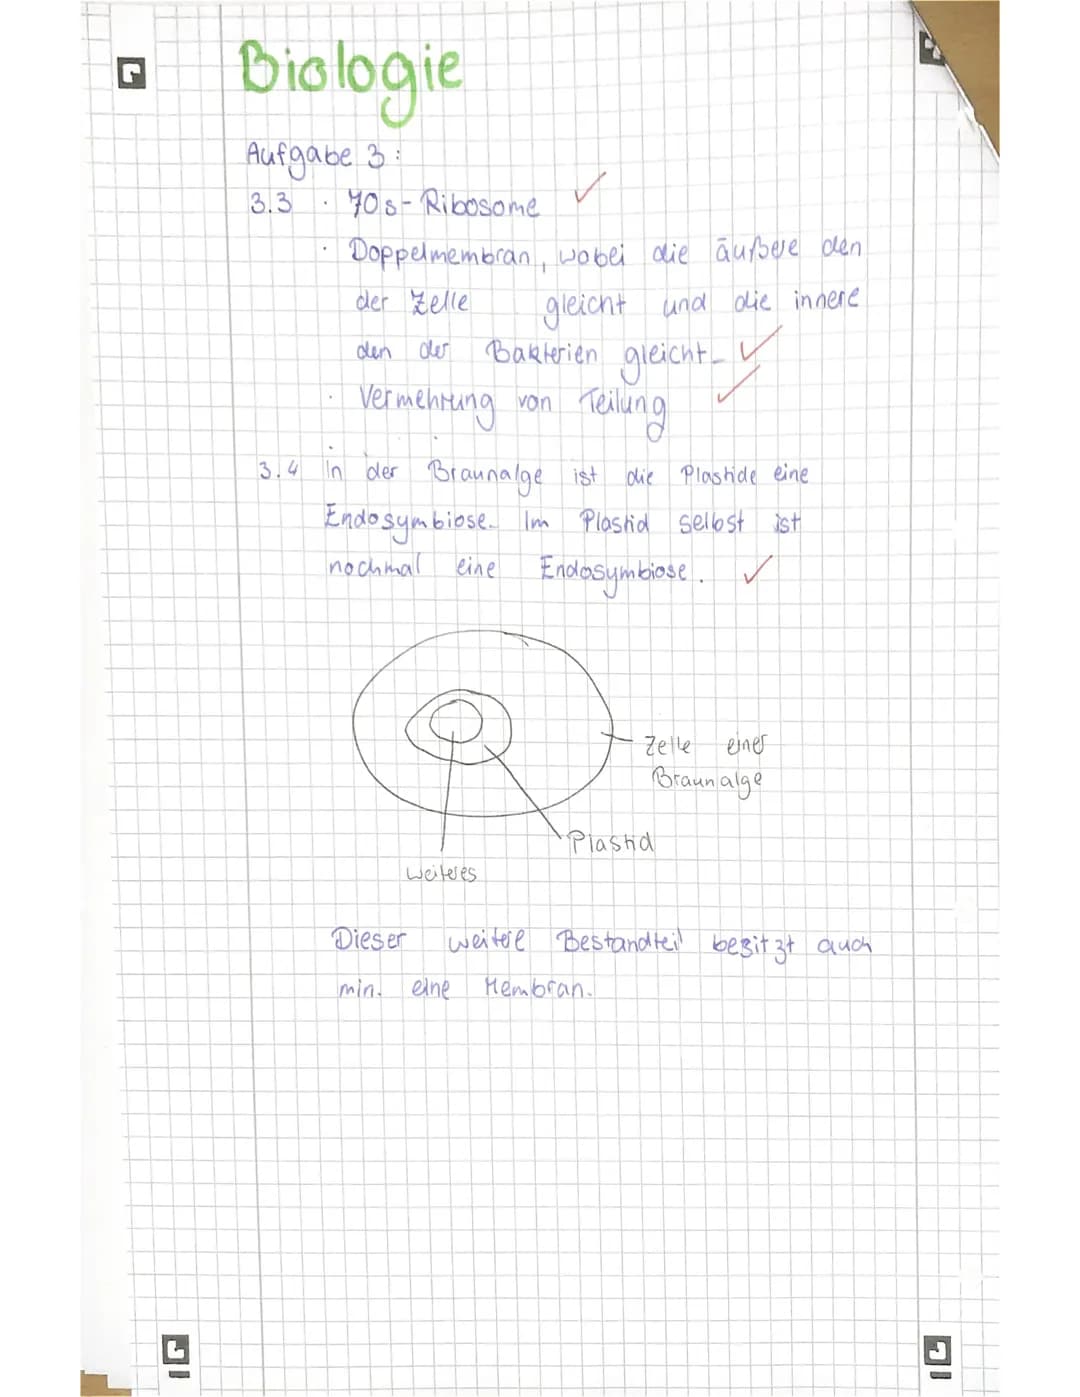 Biologie
Aufgabe 3:
3.3 · 70s-Ribosome
· Doppelmembran, wobei die äußere den
der Zelle gleicht und die innere
den der Bakterien gleicht.
· Vermehrung von Teilung
3.4 in der Braunalge ist die Plastide eine
Endosymbiose. Im Plastid selbst ist
nochmal eine Endosymbiose.
Zelle einer
Braunalge
Plastid
weiteres
Dieser weitere Bestandteil besitzt auch
min. eine Membran.